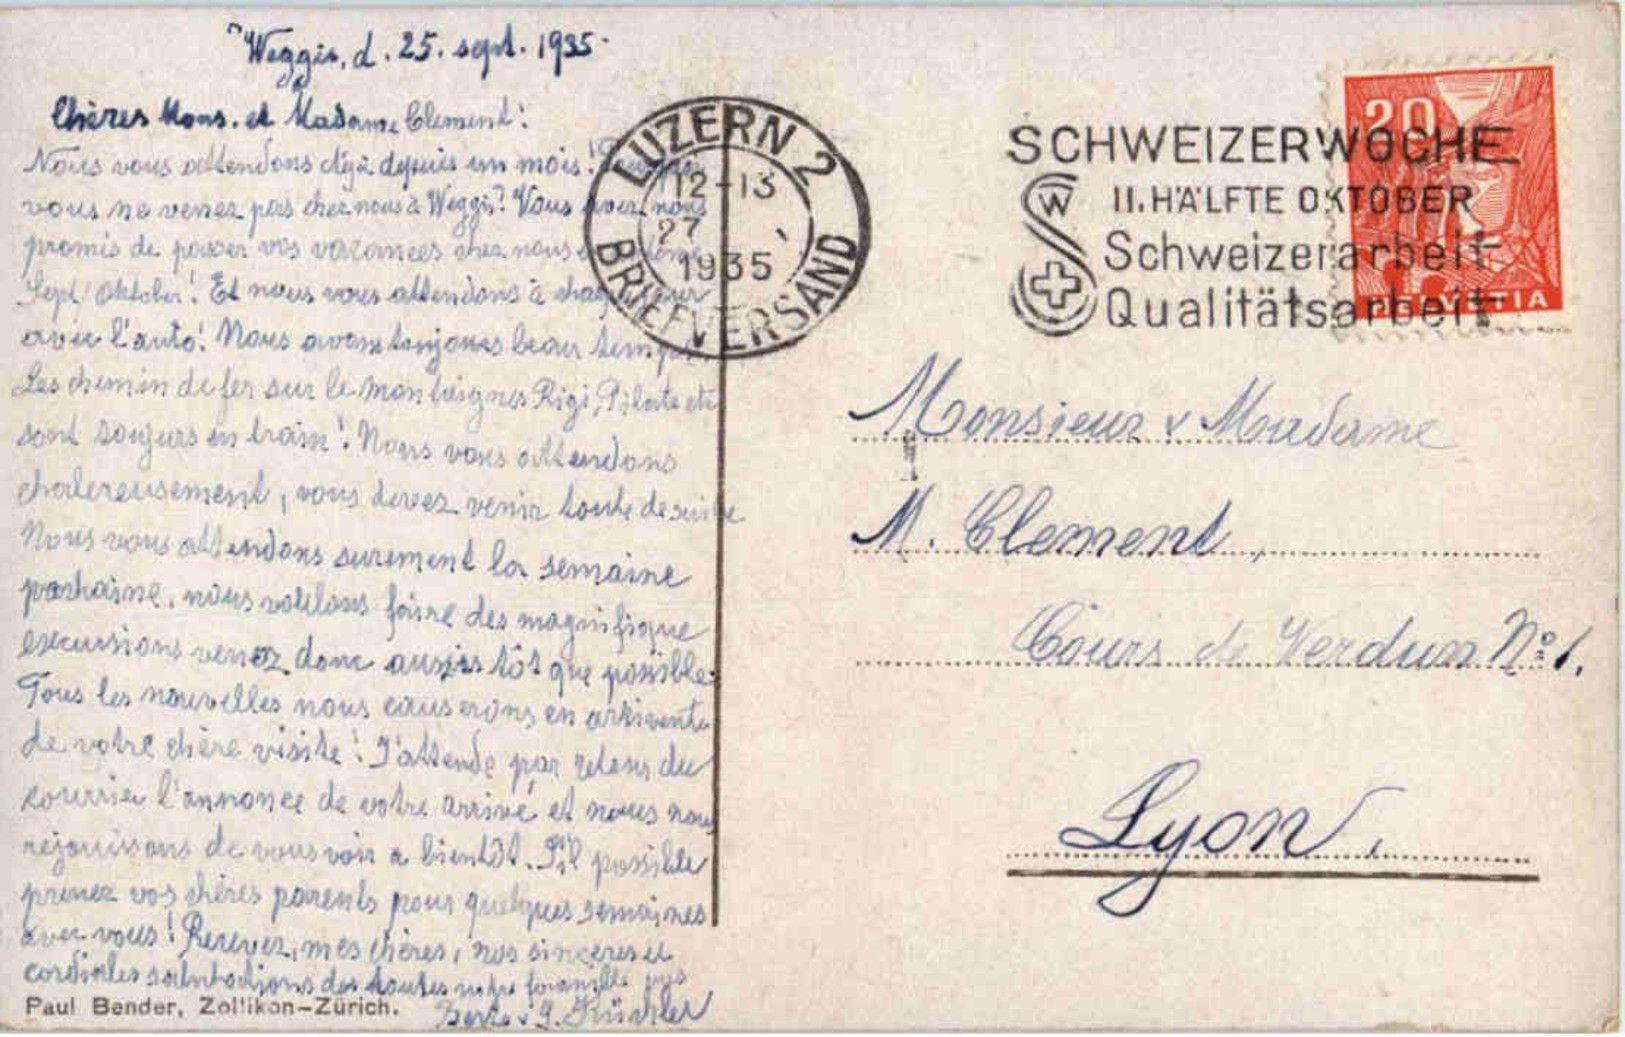 Weggis, d. 25. sept. 1935.
Chères Mons. et Madame Clement!
Nous vous attendons déjà depuis un mois!
vous ne venez pas chez nous à Weggis? Vous avez nous
promis de passer vos vacances chez nous
Sept/Oktober! Et nous vous attendons à chaque jour
avec l'auto! Nous avons toujours beau temps
Les chemin de fer sur le montaignes Rigi, Pilate etc
sont toujours en train! Nous vous attendons
chalereusement, vous devez venir toute de suite
Nous vous attendons surement la semaine
porchaine, nous voulons faire des magnifique
excursions venez donc aussis tôt que possible.
Tous les nouvelles nous causerons en
de votre chère visite! J'attends par retour du
courrier l'annonce de votre arrivé et nous nous
rejouissons de vous voir a bientôt. S'il possible
prenez vos chères parents pour quelques semaines
avec vous! Recevez, mes chères, nos sinceres et
cordiales salutations des toutes notre famille
Paul Bender, Zollikon-Zürich.
LUZERN 2
12-13
27
1935
BRIEFVERSAND
SCHWEIZERWOCHE
II. HÄLFTE OKTOBER
Schweizerarbeit
Qualitätsarbeit
SW
20
HELVETIA
Monsieur & Madame
M. Clement,
Cours de Verdun No 1.
Lyon.